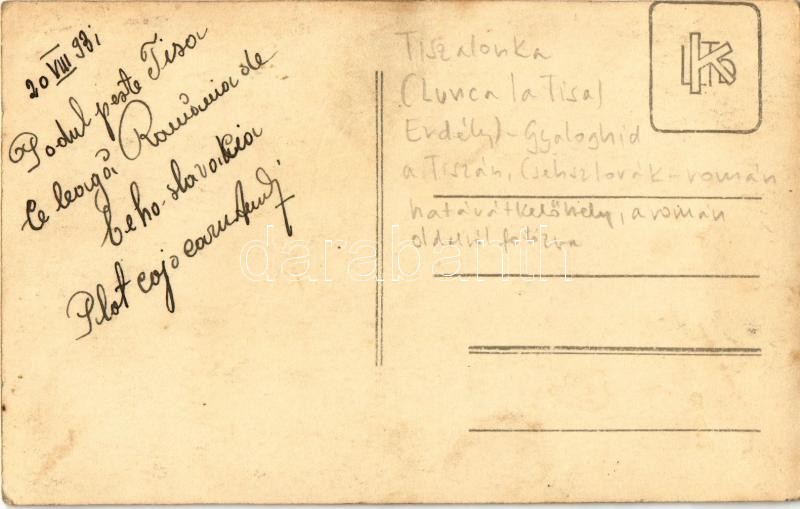 20 VIII 931
Podul peste Tisa
Ce leagă România de
Ceho-slavakia
Plot
Tiszalonka
(Lunca la Tisa)
Erdély) - Gyaloghíd
a Tiszán, Csehszlovák - román
határátkelőhely, a román
oldalról fotózva
darabanth